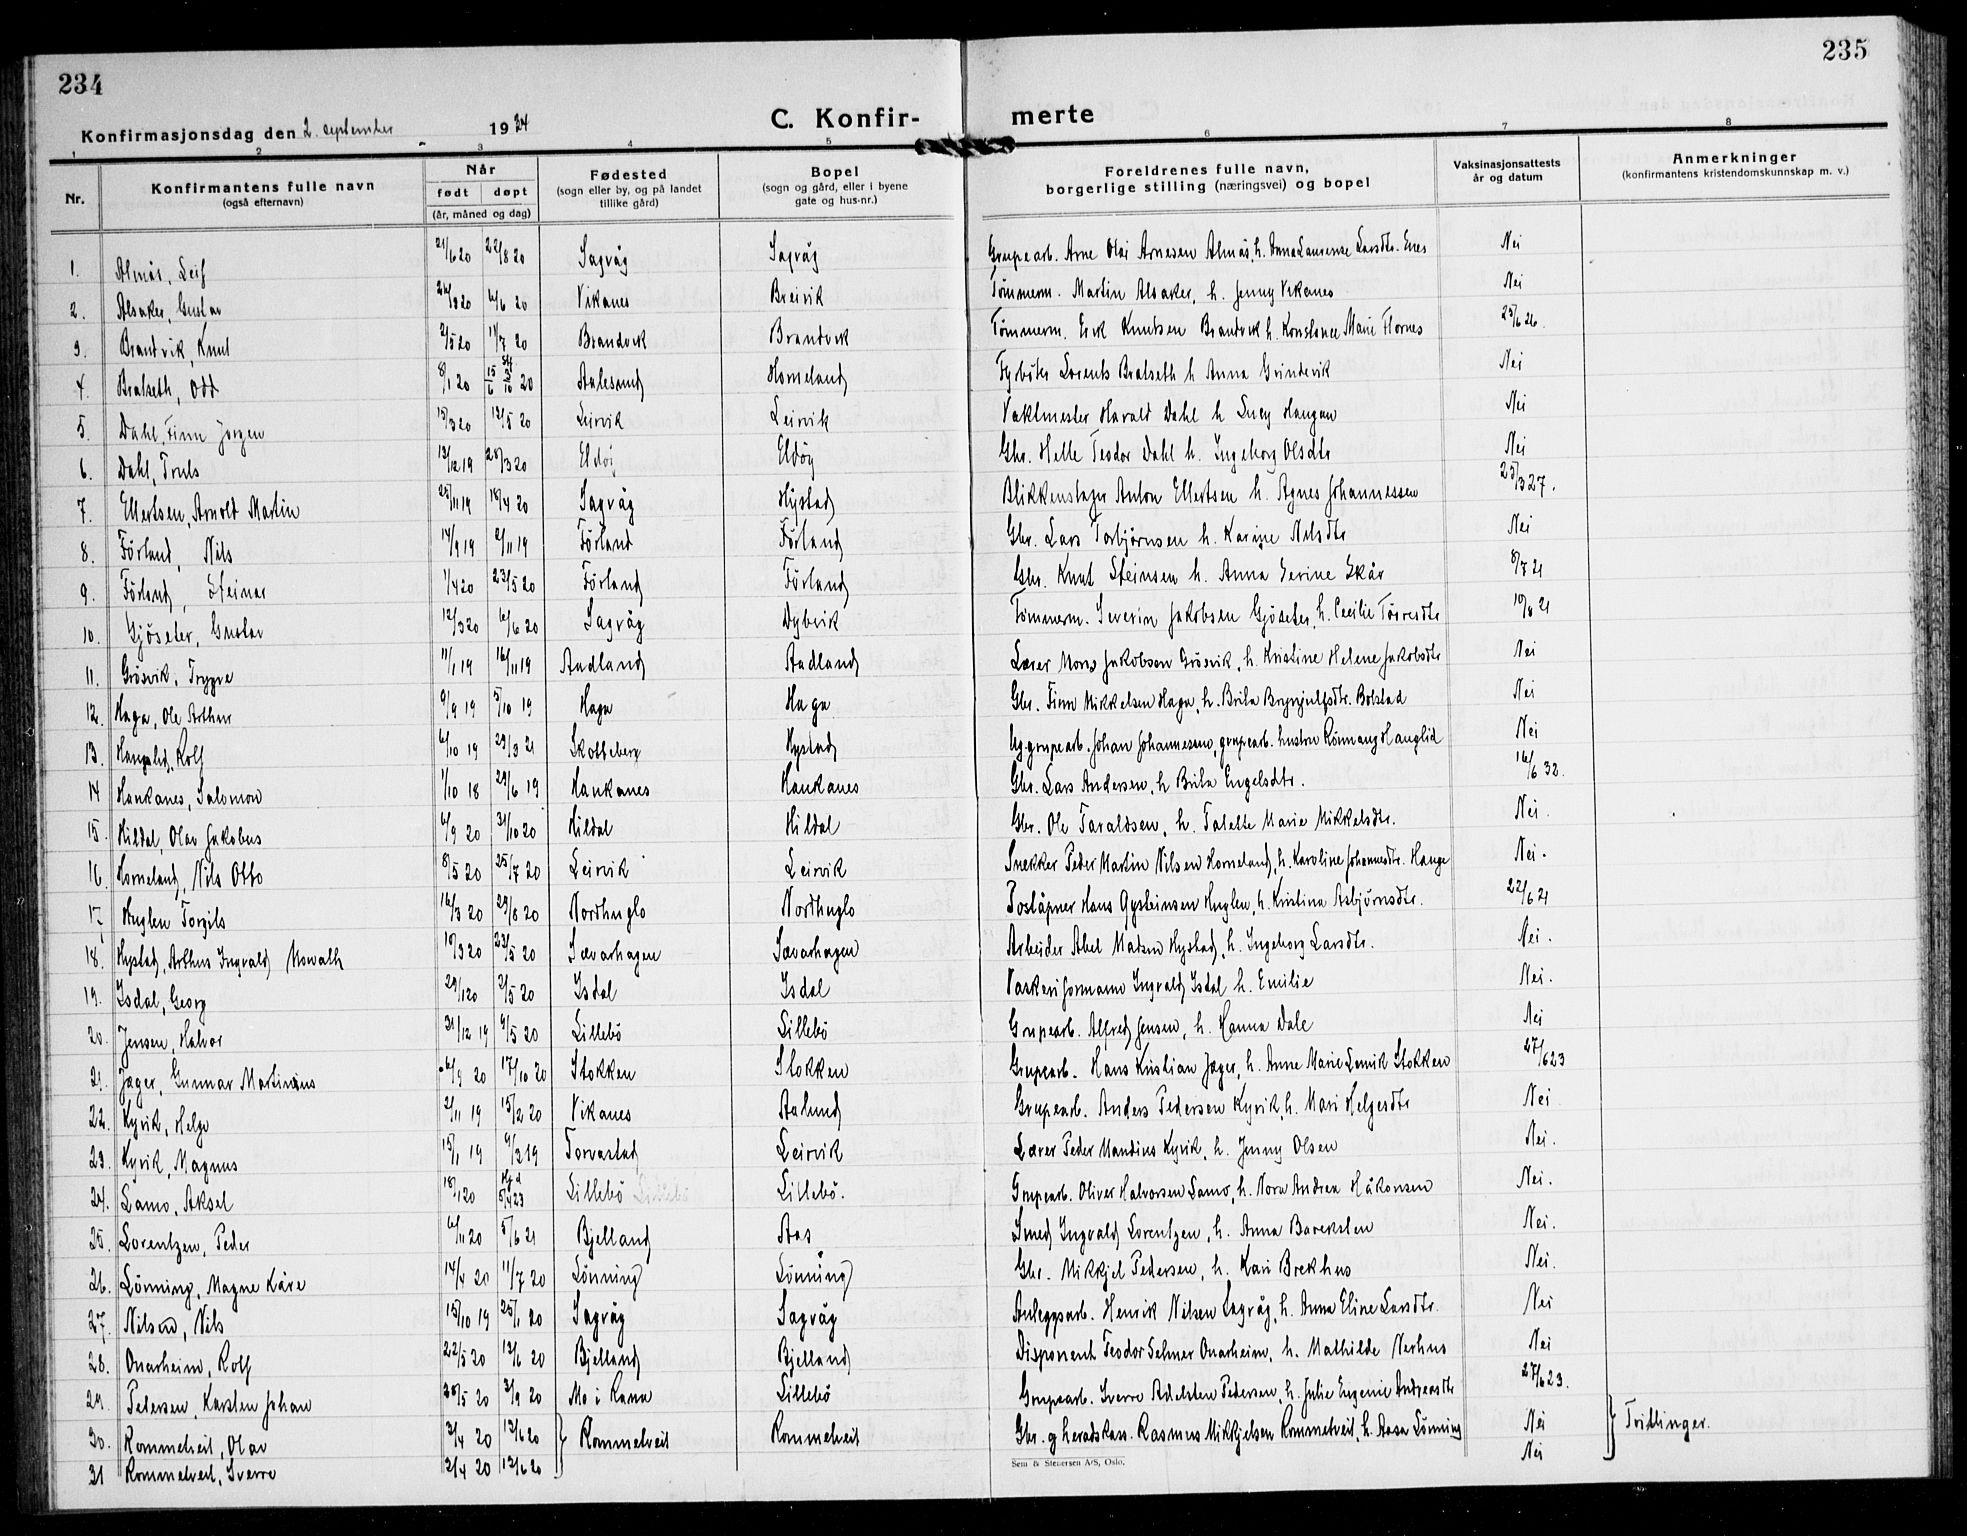 234
235
Konfirmasjonsdag den 2. september 1934
C. Konfir-
merte
1 2 3 4 5 6 7 8
Nr.
Konfirmantens fulle navn
(også efternavn)
Når
født døpt
(år, måned og dag)
Fødested
(sogn eller by, og på landet
tillike gård)
Bopel
(sogn og gård, eller i byene
gate og hus-nr.)
Foreldrenes fulle navn,
borgerlige stilling (næringsvei) og bopel
Vaksinasjonsattests
år og datum
Anmerkninger
(konfirmantens kristendomskunnskap m. v.)
1. Almås, Leif 21/6 20 22/8 20 Sagvåg Sagvåg Grupearb. Arne Olai Arnesen Almås, h. Anna Laurense Larsdtr. Enes Nei
2. Alsaker, Gustav 6/6 20 Vikanes Breivik Tömmerm. Martin Alsaker, h. Jenny Vikanes Nei
3. Brandvik, Knut 2/5 20 11/7 20 Brandvik Brandvik Tömmerm. Erik Knutsen Brandvik h. Konstanse Marie Flornes 25/6 26.
4. Bratseth, Odd 8/1 20 15/6 20 Aalesund Horneland Fyrböter Lorents Bratseth h Anna Grindevik Nei
5. Dahl, Finn Jørgen 15/3 20 12/5 20 Leirvik Leirvik Vaktmester Harald Dahl h Lucy Haugan Nei
6. Dahl, Truls 13/12 19 28/3 20 Eldöy Eldöy Gbr. Helle Teodor Dahl h. Ingeborg Olsdtr Nei
7. Ellertsen, Arnold Martin 25/11 19 18/4 20 Sagvåg Hystad Blikkenslager Anton Ellertsen h. Agnes Johannessen 25/3 27.
8. Förland, Nils 14/9 19 2/11 19 Förland Förland Gbr. Lars Torbjörnsen h. Karine Nilsdtr Nei
9. Förland, Steinar 1/4 20 23/5 20 Förland Förland Gbr. Knut Steinsen h. Anna Serine Skår 8/7 21
10. Gjöseter, Gustav 12/3 20 6/6 20 Sagvåg Dybvik Tömmerm. Severin Jakobsen Gjöseter, h. Cecilie Törresdtr 10/8 21
11. Grösvik, Trygve 11/1 19 16/11 19 Aadland Aadland Lærer Mons Jakobsen Grösvik, h. Kristine Helene Jakobsdtr Nei
12. Haga, Ole Arthur 9/9 19 5/10 19 Haga Haga Gbr. Finn Mikkelsen Haga, h. Brita Brynjulfsdtr. Bolstad Nei
13. Hanglid, Rolf 6/10 19 29/3 21 Skotteberg Hystad Ug. grupearb. Johan Johannessen, grupearb. hustru Rönnaug Hanglid Nei
14 Haukanes, Salomon 1/10 18 29/6 19 Haukanes Haukanes Gbr. Lars Andersen, h Brita Engelsdtr. 16/6 32.
15. Hildal, Olav Jakobus 6/9 20 31/10 20 Hildal Hildal Gbr. Ole Taraldsen, h. Talette Marie Mikkelsdtr. Nei.
16. Horneland, Nils Otto 8/5 20 25/7 20 Leirvik Leirvik Snekker Peder Martin Nilsen Horneland, h. Karoline Johannesdtr. Hauge Nei.
17. Huglen Torgils 16/3 20 29/8 20 Nordhuglo Nordhuglo Poståpner Hans Øysteinsen Huglen, h. Kristina Asbjörnsdtr. 22/6 21
18. Hystad, Arthur Ingvald Howath 10/3 20 23/5 20 Sævarhagen Sævarhagen Arbeider Abel Matsen Hystad, h. Ingeborg Larsdtr. Nei.
19. Isdal, Georg 29/1 20 2/5 20 Isdal Isdal Vaskeriformann Ingvald Isdal h. Emilie Nei.
20. Jensen, Halvor 31/12 19 9/5 20 Lillebö Lillebö Grupearb. Alfred Jensen, h. Hanna Dale Nei
21. Jæger, Gunnar Martinius 6/9 20 17/10 20 Stokken Stokken Grupearb. Hans Kristian Jæger, h. Anne Marie Lervik Stokken 27/6 23
22. Kyvik, Helge 2/11 19 15/2 20 Vikanes Aalund Grupearb. Anders Pedersen Kyvik, h. Mari Helgesdtr Nei
23. Kyvik, Magnus 15/1 19 9/2 19 Torvastad Leirvik Lærer Peder Mandius Kyvik, h. Jenny Olsen Nei.
24. Lamo, Aksel 18/1 20 Hj.d 5/4 23 Lillebö Lillebö. Grupearb. Oliver Halvorsen Lamo, h. Nora Andrea Håkonsen Nei.
25. Lorentzen, Peder 6/11 20 5/6 21 Bjelland Aas Smed Ingvald Lorentzen, h. Anna Barckslen Nei.
26. Lönning, Magne Kåre 14/4 20 11/7 20 Lönning Lönning Gbr. Mikkjel Pedersen, h. Kari Brekhus Nei.
27. Nilsen, Nils 15/10 19 25/1 20 Sagvåg Sagvåg Anleggsarb. Henrik Nilsen Sagvåg, h. Anna Eline Larsdtr. Nei
28. Onarheim, Rolf 22/5 20 13/6 20 Bjelland Bjelland Disponent Teodor Selmer Onarheim, h. Mathilde Nerhus Nei
29. Petersen, Karsten Johan 28/5 20 3/9 20 Mo i Rana Lillebö Grupearb. Sverre Adelsten Pedersen, h. Julie Eugenie Andreasdtr 27/6 23.
30. Rommetveit, Olav 2/4 20 13/6 20 } Rommetveit Rommetveit Gbr. og heradskass. Rasmus Mikkjelsen Rommetveit, h. Aasa Lönning Nei } Tvillinger.
31 Rommetveit, Sverre 2/4 20 13/6 20 Nei
Sem & Stenersen A/S, Oslo.